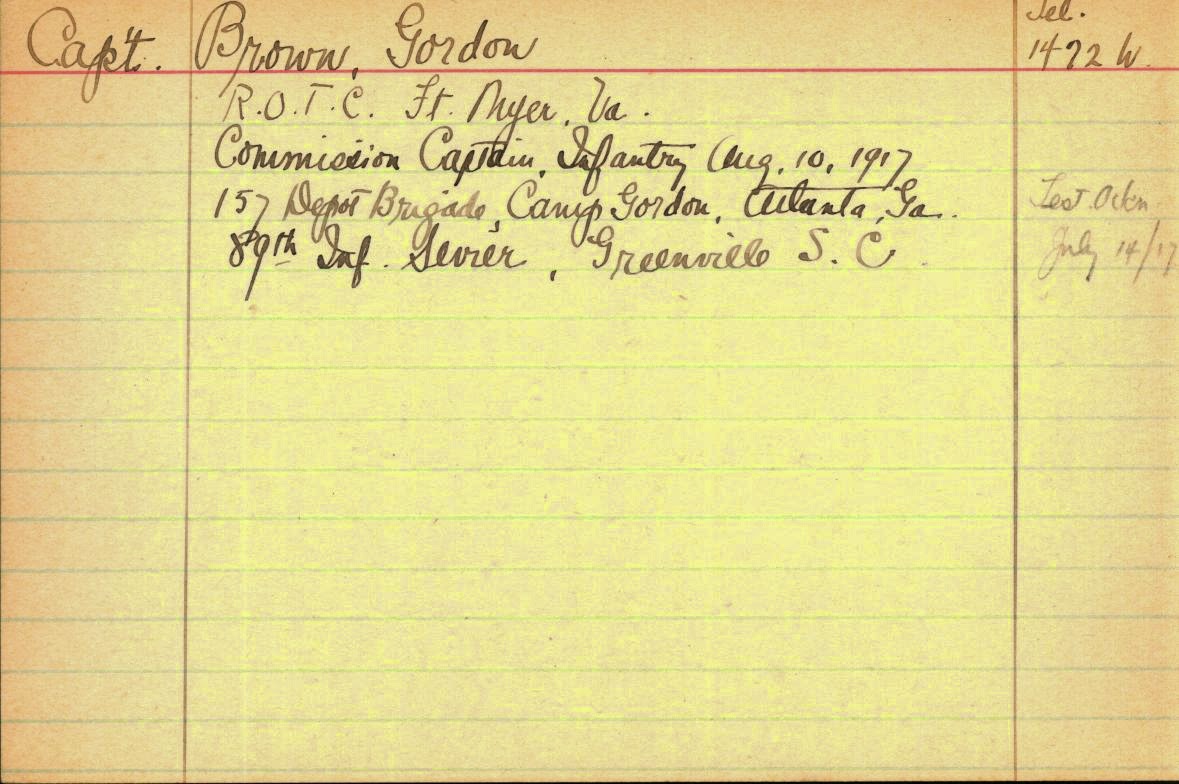 Capt. Brown, Gordon
Tel.
1472 W.
R.O.T.C. Ft. Myer, Va.
Commission Captain, Infantry Aug. 10, 1917
157 Depot Brigade, Camp Gordon, Atlanta, Ga.
89th Inf. Sevier, Greenville S. C.
July 14/17